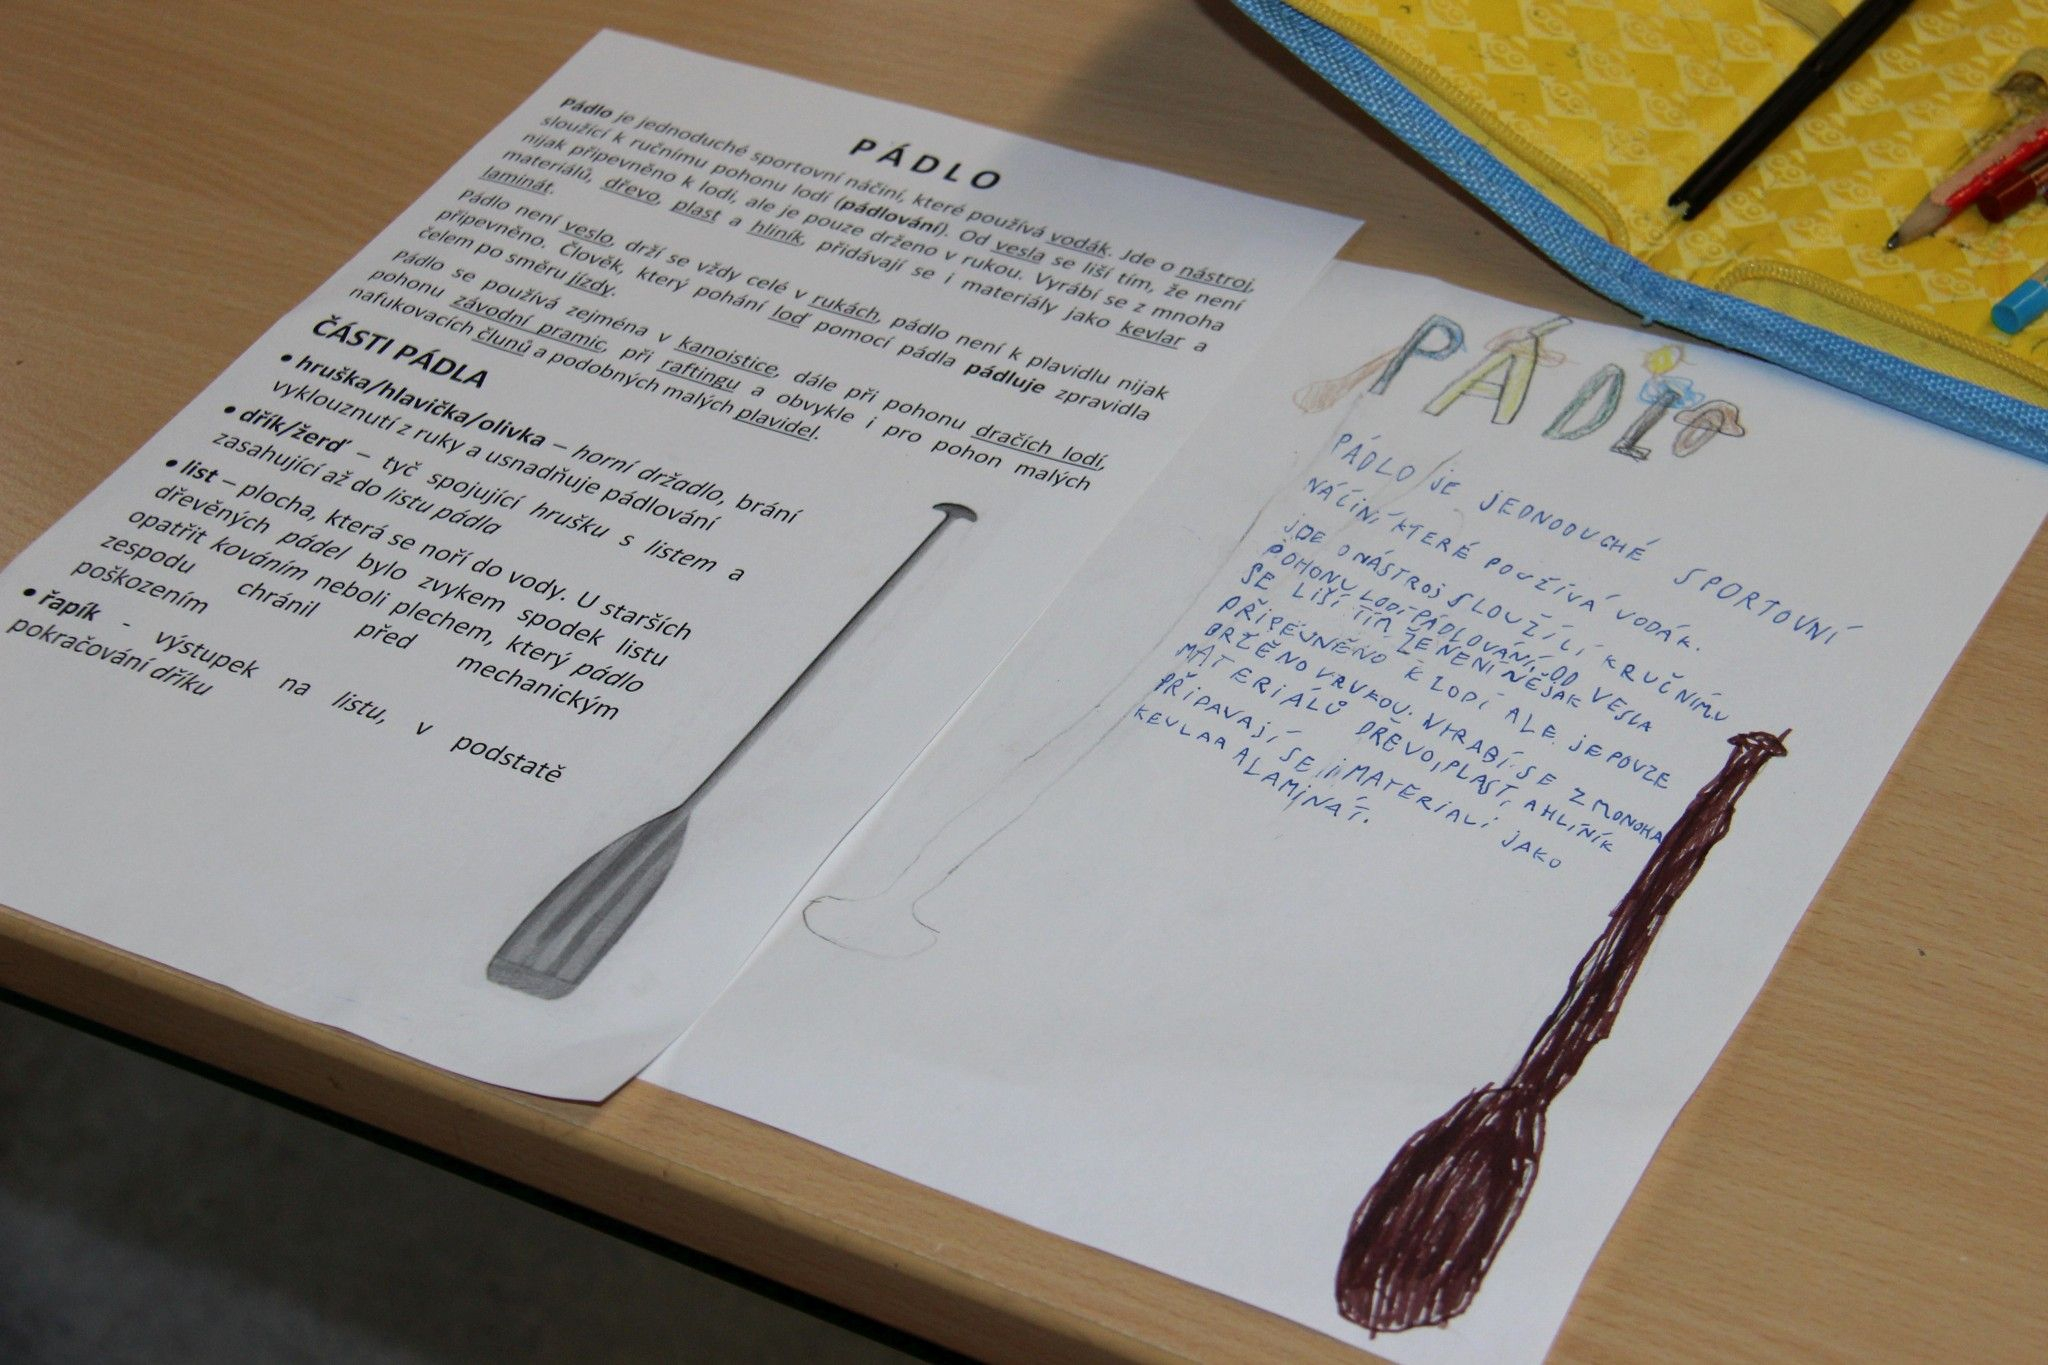 PÁDLO
Pádlo je jednoduché sportovní náčiní, které používá vodák. Jde o nástroj,
sloužící k ručnímu pohonu lodí (pádlování). Od vesla se liší tím, že není
nijak připevněno k lodi, ale je pouze drženo v rukou. Vyrábí se z mnoha
materiálů, dřevo, plast a hliník, přidávají se i materiály jako kevlar a
laminát.
Pádlo není veslo, drží se vždy celé v rukách, pádlo není k plavidlu nijak
připevněno. Člověk, který pohání loď pomocí pádla pádluje zpravidla
čelem po směru jízdy.
Pádlo se používá zejména v kanoistice, dále při pohonu dračích lodí,
pohonu závodní pramic, při raftingu a obvykle i pro pohon malých
nafukovacích člunů a podobných malých plavidel.
ČÁSTI PÁDLA
• hruška/hlavička/olivka – horní držadlo, brání
vyklouznutí z ruky a usnadňuje pádlování
• dřík/žerď – tyč spojující hrušku s listem a
zasahující až do listu pádla
• list – plocha, která se noří do vody. U starších
dřevěných pádel bylo zvykem spodek listu
opatřit kováním neboli plechem, který pádlo
zespodu chránil před mechanickým
poškozením
• řapík - výstupek na listu, v podstatě
pokračování dříku
PÁDLO
PÁDLO JE JEDNODUCHÉ SPORTOVNÍ
NÁČINÍ KTERÉ POUŽÍVÁ VODÁK.
JDE O NÁSTROJ SLOUŽÍLÍ K RUČNÍMU
POHONU LODÍ-PÁDLOVÁNÍ, OD VESLA
SE LIŠÍ TÍM ŽE NENÍ NĚJAK
PŘIPEVNĚNO K LODÍ ALE JE POUZE
DRŽĚNO V RUKOU. VYRABÍ SE Z MONOHA
MATERIÁLŮ DŘEVO, PLAST, A HLÍNÍK
PŘIPAVAJÍ SE I MATERIALI JAKO
KEVLAR A LAMINÁT.